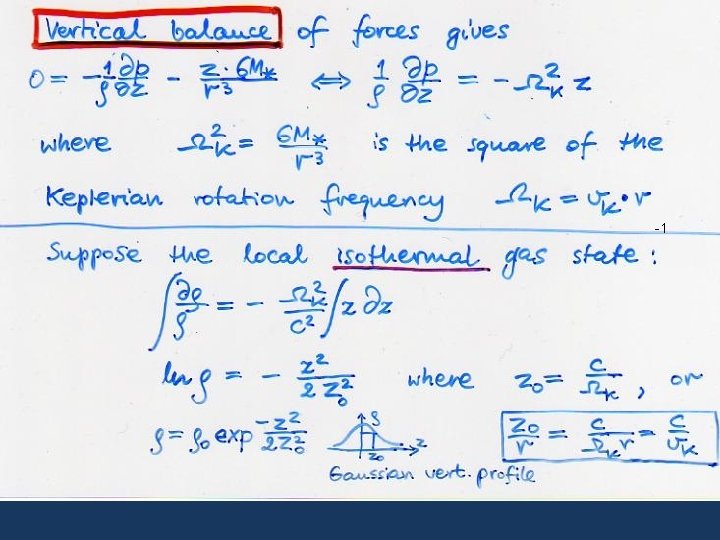 Vertical balance of forces gives
0 = - 1/ρ ∂p/∂z - z·GM*/r³ ⟺ 1/ρ ∂p/∂z = -Ω_K² z
where Ω_K² = GM*/r³ is the square of the
Keplerian rotation frequency Ω_K = v_K·r
-1
Suppose the local isothermal gas state :
∫ ∂ρ/ρ = - Ω_K²/c² ∫ z ∂z
ln ρ = - z²/2z₀² where z₀ = c/Ω_K , or
ρ = ρ₀ exp -z²/2z₀² ρ z₀ z z₀/r = c/Ω_K r = c/v_K
Gaussian vert. profile